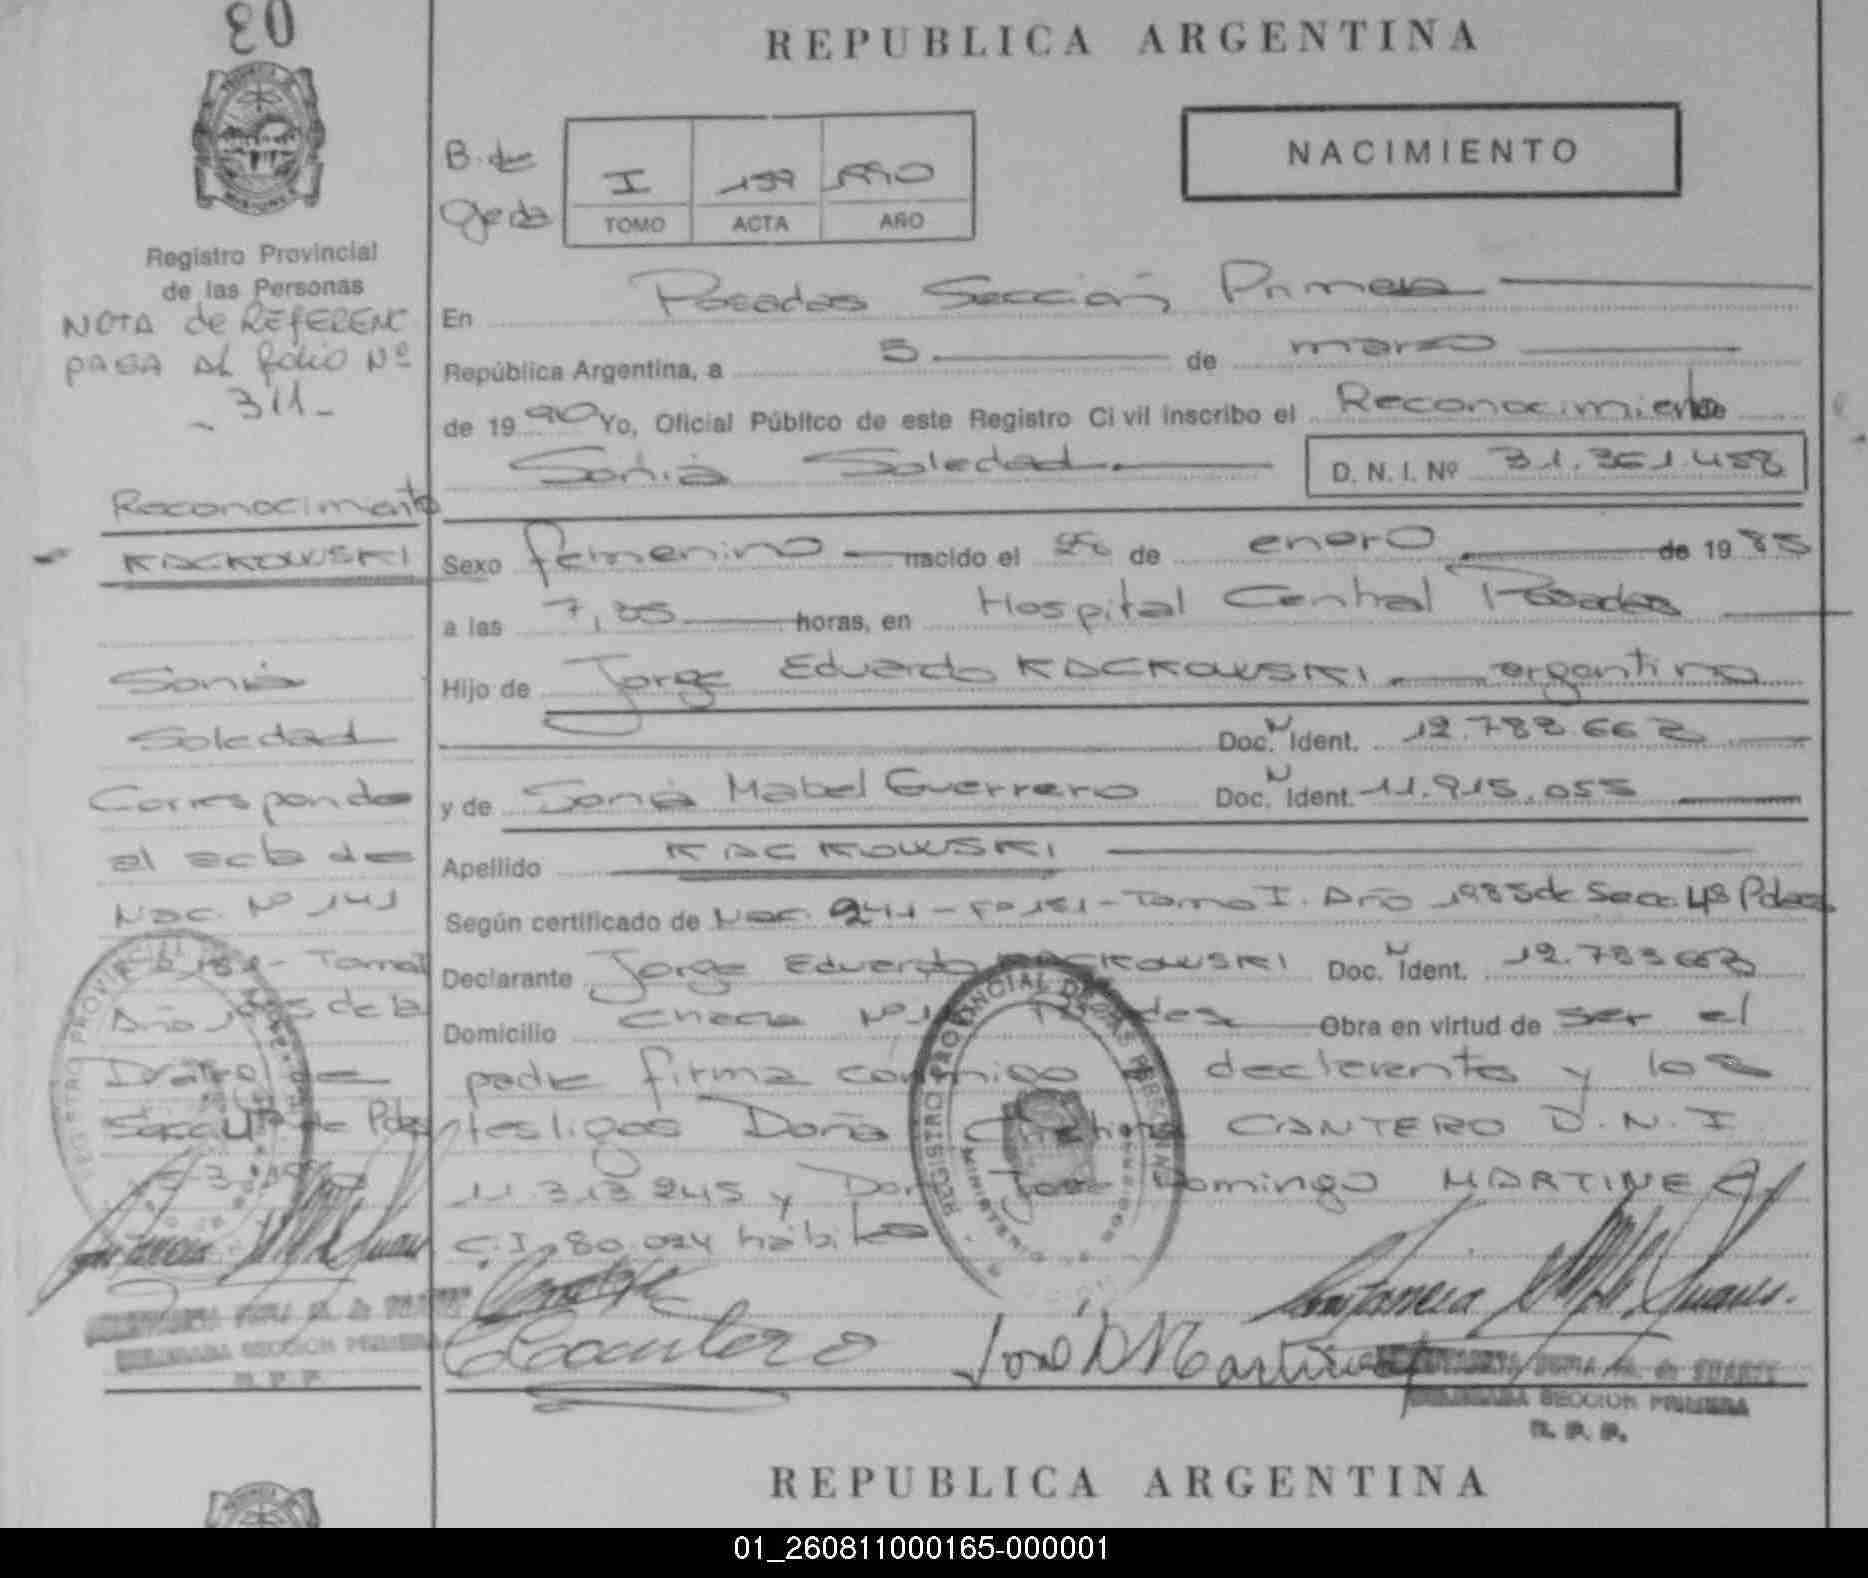 03
REPUBLICA ARGENTINA
NACIMIENTO
B. de
Ojeda
I 199 1990
TOMO ACTA AÑO
Registro Provincial
de las Personas
NOTA de REFERENC
PASA AL folio Nº
- 311 -
En Posadas Sección Primera
República Argentina, a 5 de marzo
de 1990 Yo, Oficial Público de este Registro Civil inscribo el Reconocimiento de
Sonia Soledad D. N. I. Nº 31.361.458
Sexo femenino nacido el 28 de enero de 1985
a las 7,35 horas, en Hospital Central Posadas
Hijo de Jorge Eduardo KACKOWSKI argentino
Doc. N Ident. 12.783.662
y de Sonia Mabel Guerrero Doc. N Ident. 11.915.055
Apellido KACKOWSKI
Según certificado de Nac. 241 - Fº 181 - Tomo I. Año 1985 de Secc 4ª Pdas
Declarante Jorge Eduardo KACKOWSKI Doc. N Ident. 12.783.662
Domicilio Chacra Nº Obra en virtud de ser el
padre firma conmigo declarante y los
testigos Doña CANTERO D.N.I
11.313.245 y Don José Domingo MARTINEZ
C.I. 80.024 hábiles
Reconocimiento
KACKOWSKI
Sonia
Soledad
Corresponde
al acta de
Nac. Nº 141
Fº 181 - Tomo I
Año 1985 de la
Secc 4ª de Pdas
CCantero
José D Martinez
DELEGADA SECCION PRIMERA
R. P. P.
DELEGADA SECCION PRIMERA
R. P. P.
REPUBLICA ARGENTINA
01_260811000165-000001